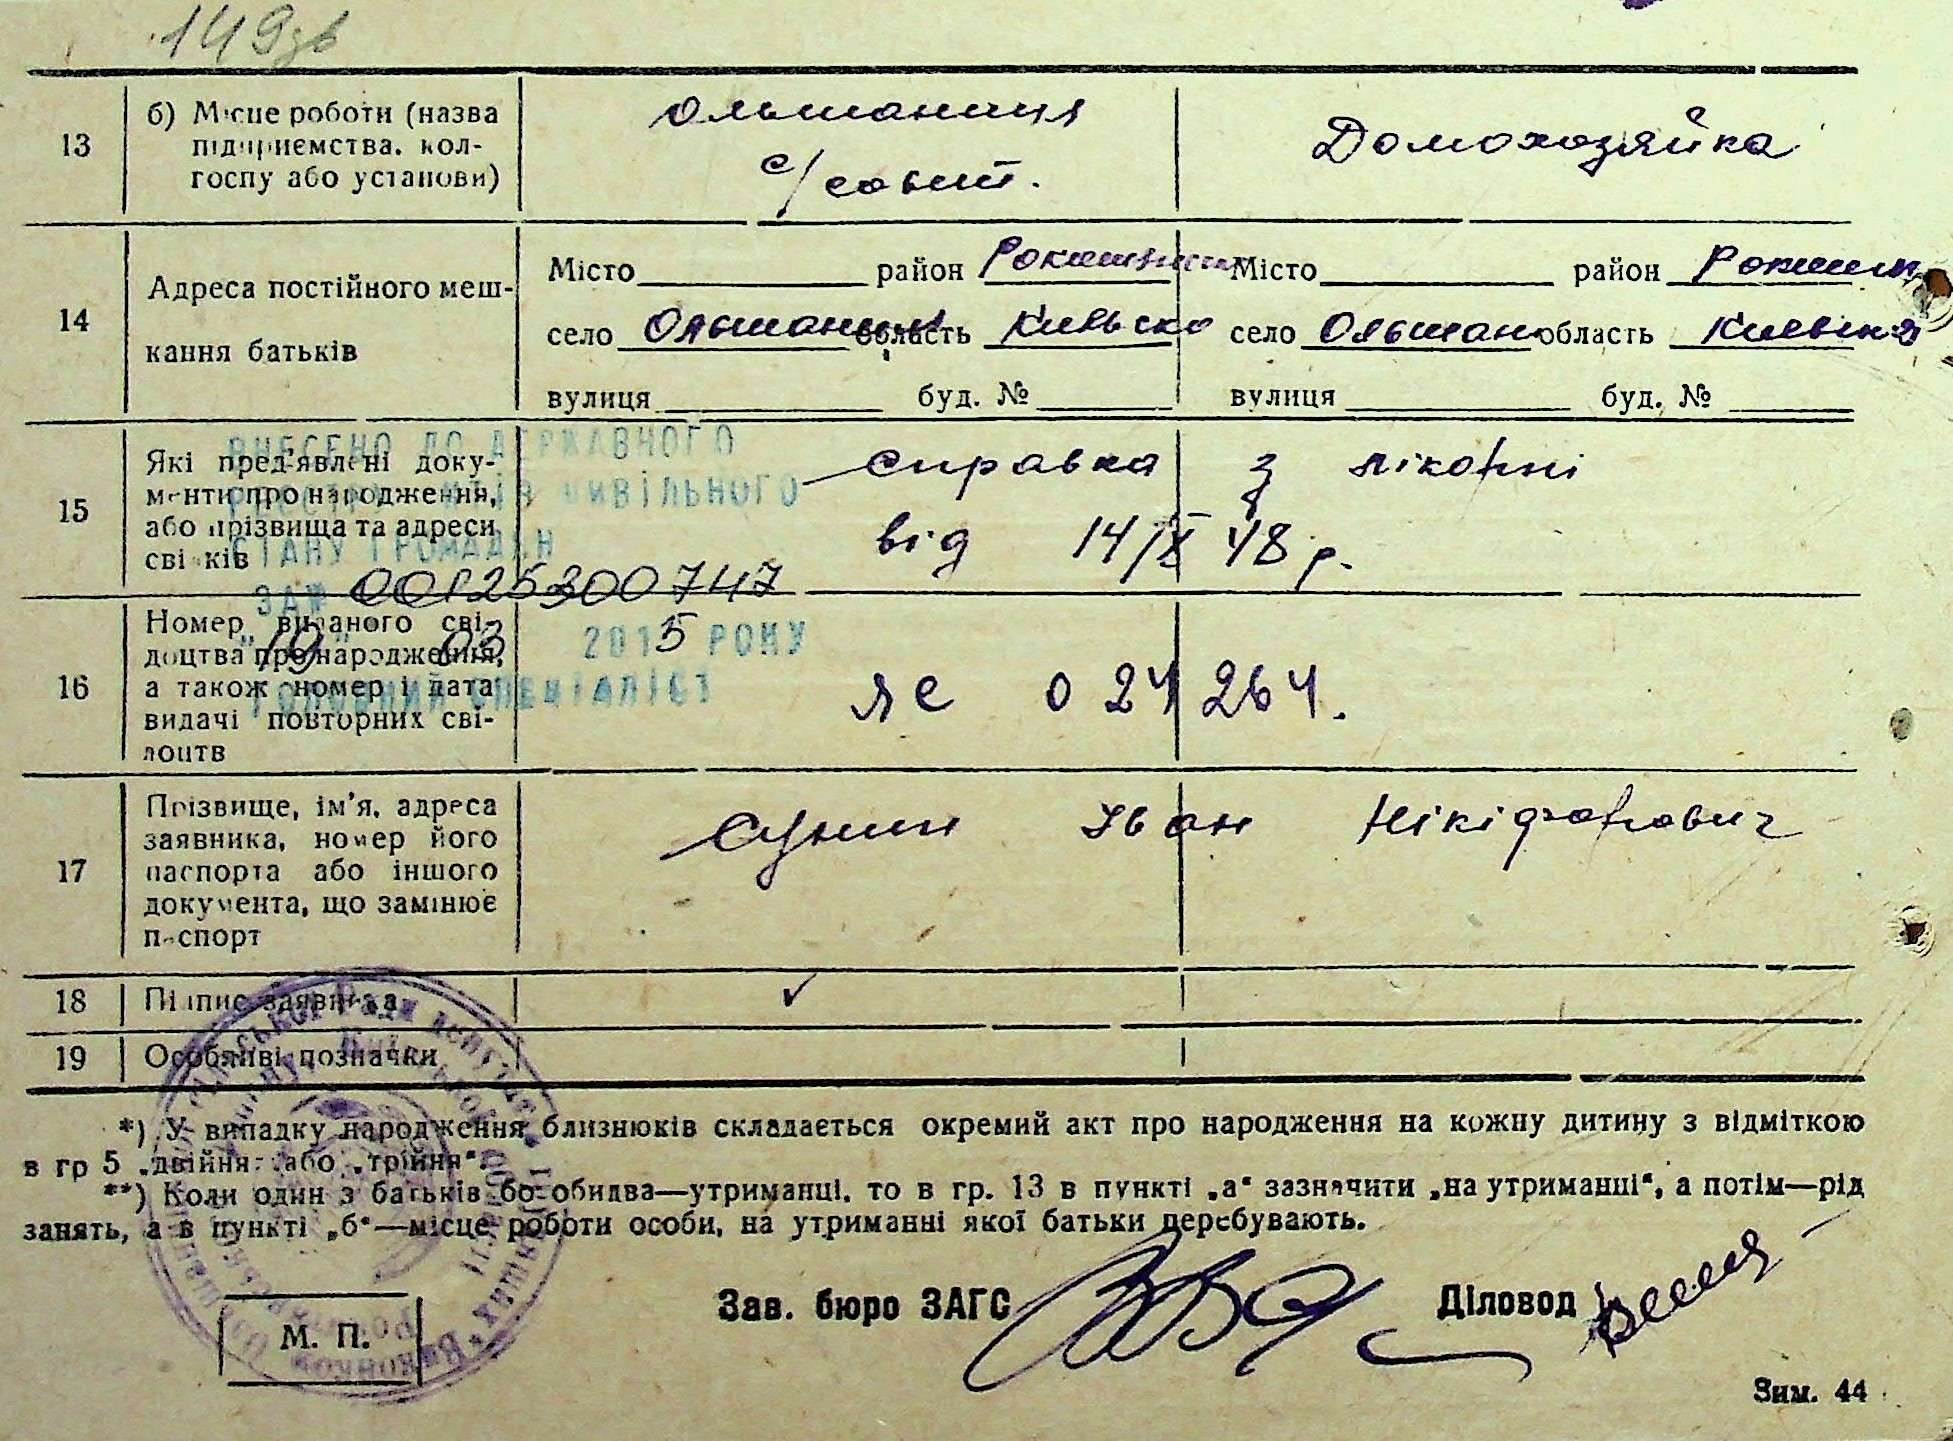 149зв
13
б) Місце роботи (назва
підприємства, кол-
госпу або установи)
Ольшаниця
с/совит.
Домохозяйка
14
Адреса постійного меш-
кання батьків
Місто район Рокитнян
село Ольшаниця область Київсько
вулиця буд. №
Місто район Рокитнян
село Ольшан область Київська
вулиця буд. №
15
Які пред'явлені доку-
менти про народження,
або прізвища та адреси
свідків
справка з лікарні
від 14/X 48 р.
ВНЕСЕНО ДО ДЕРЖАВНОГО
РЕЄСТРУ АКТІВ ЦИВІЛЬНОГО
СТАНУ ГРОМАДЯН
ЗА № 00125300747
"19" 03 2015 РОКУ
ГОЛОВНИЙ СПЕЦІАЛІСТ
16
Номер виданого сві-
доцтва про народження,
а також номер і дата
видачі повторних сві-
доцтв
ЯЄ 024264.
17
Прізвище, ім'я, адреса
заявника, номер його
паспорта або іншого
документа, що замінює
паспорт
Сунин Іван Нікіфорович
18
Підпис заявника
19
Особливі позначки
*) У випадку народження близнюків складається окремий акт про народження на кожну дитину з відміткою
в гр 5 „двійня" або „трійня".
**) Коли один з батьків бо обидва—утриманці, то в гр. 13 в пункті „а" зазначити „на утриманні", а потім—рід
занять, а в пункті „б"—місце роботи особи, на утриманні якої батьки перебувають.
Зав. бюро ЗАГС
Діловод
М. П.
Зим. 44